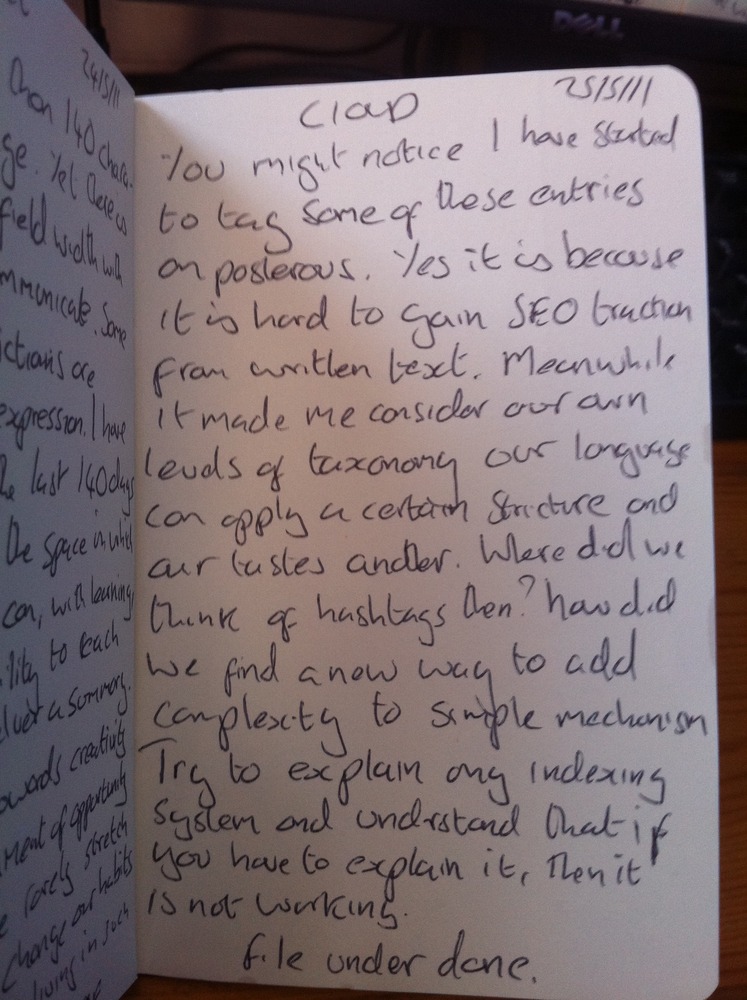 DELL
24/5/11
than 140 charac-
ge. Yet there is
field width with
mmunicate. Some
ictions are
expression. I have
he last 140 days
the space in which
can, with learning
ility to teach
luer a summary.
owards creativity
ment of opportunity
e rarely stretch
change our habits
living in such
25/5/11
Cloud
You might notice I have started
to tag some of these entries
on posterous. Yes it is because
it is hard to gain SEO traction
from written text. Meanwhile
it made me consider our own
levels of taxonomy our language
can apply a certain stricture and
our tastes another. Where did we
think of hashtags then? how did
we find a new way to add
complexity to simple mechanism
Try to explain any indexing
system and understand that if
you have to explain it, then it
is not working.
file under done.